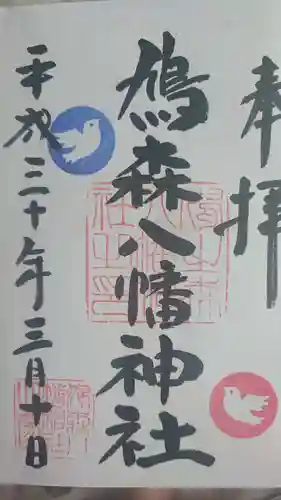 奉拝
鳩森八幡神社
平成三十年三月十日